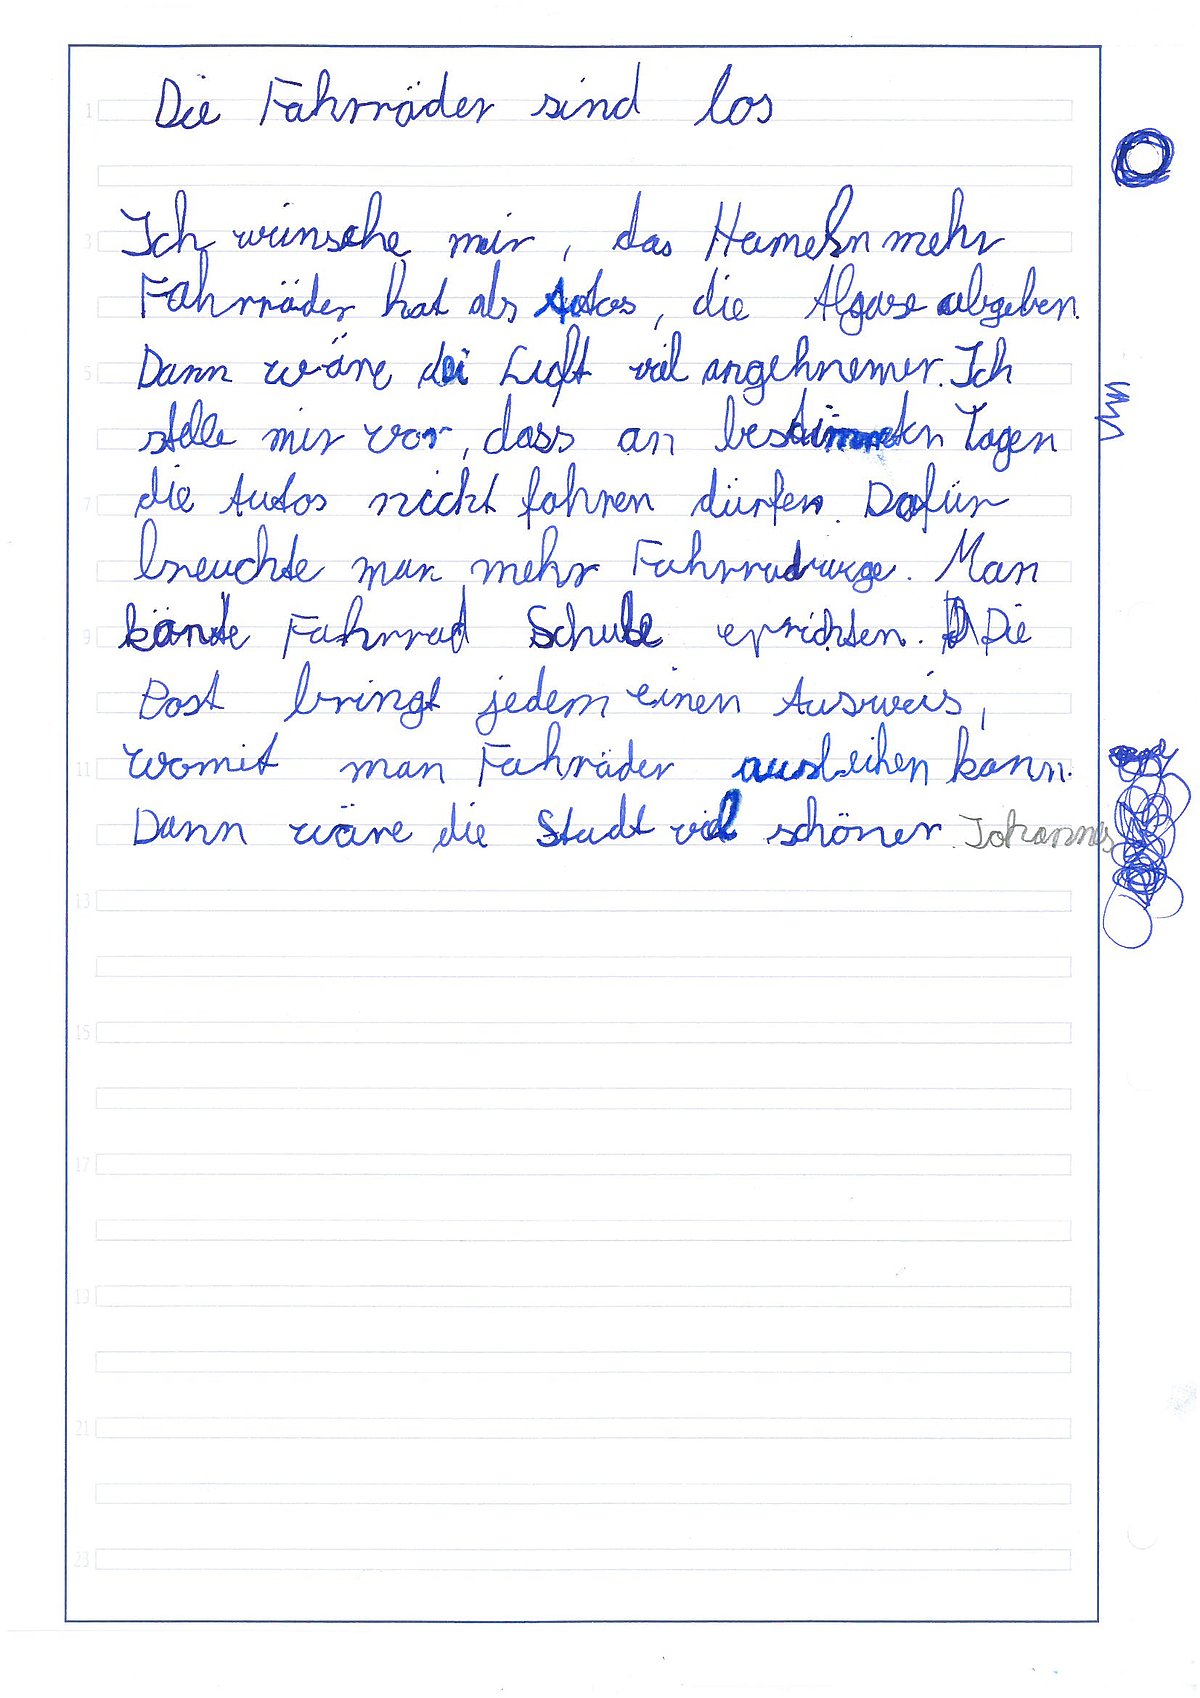 Die Fahrräder sind los
Ich wünsche mir, das Hameln mehr
Fahrräder hat als Autos, die Abgase abgeben.
Dann wäre di Luft viel angehnemer. Ich
stelle mir vor, dass an bestimmten Tagen
die Autos nicht fahren dürfen. Dafür
breuchte man mehr Fahrradwege. Man
könnte Fahrrad Schule errichten. Die
Post bringt jedem einen Ausweis,
womit man Fahräder ausleihen kann.
Dann wäre die Stadt viel schöner. Johannes
1
3
5
7
9
11
13
15
17
19
21
23